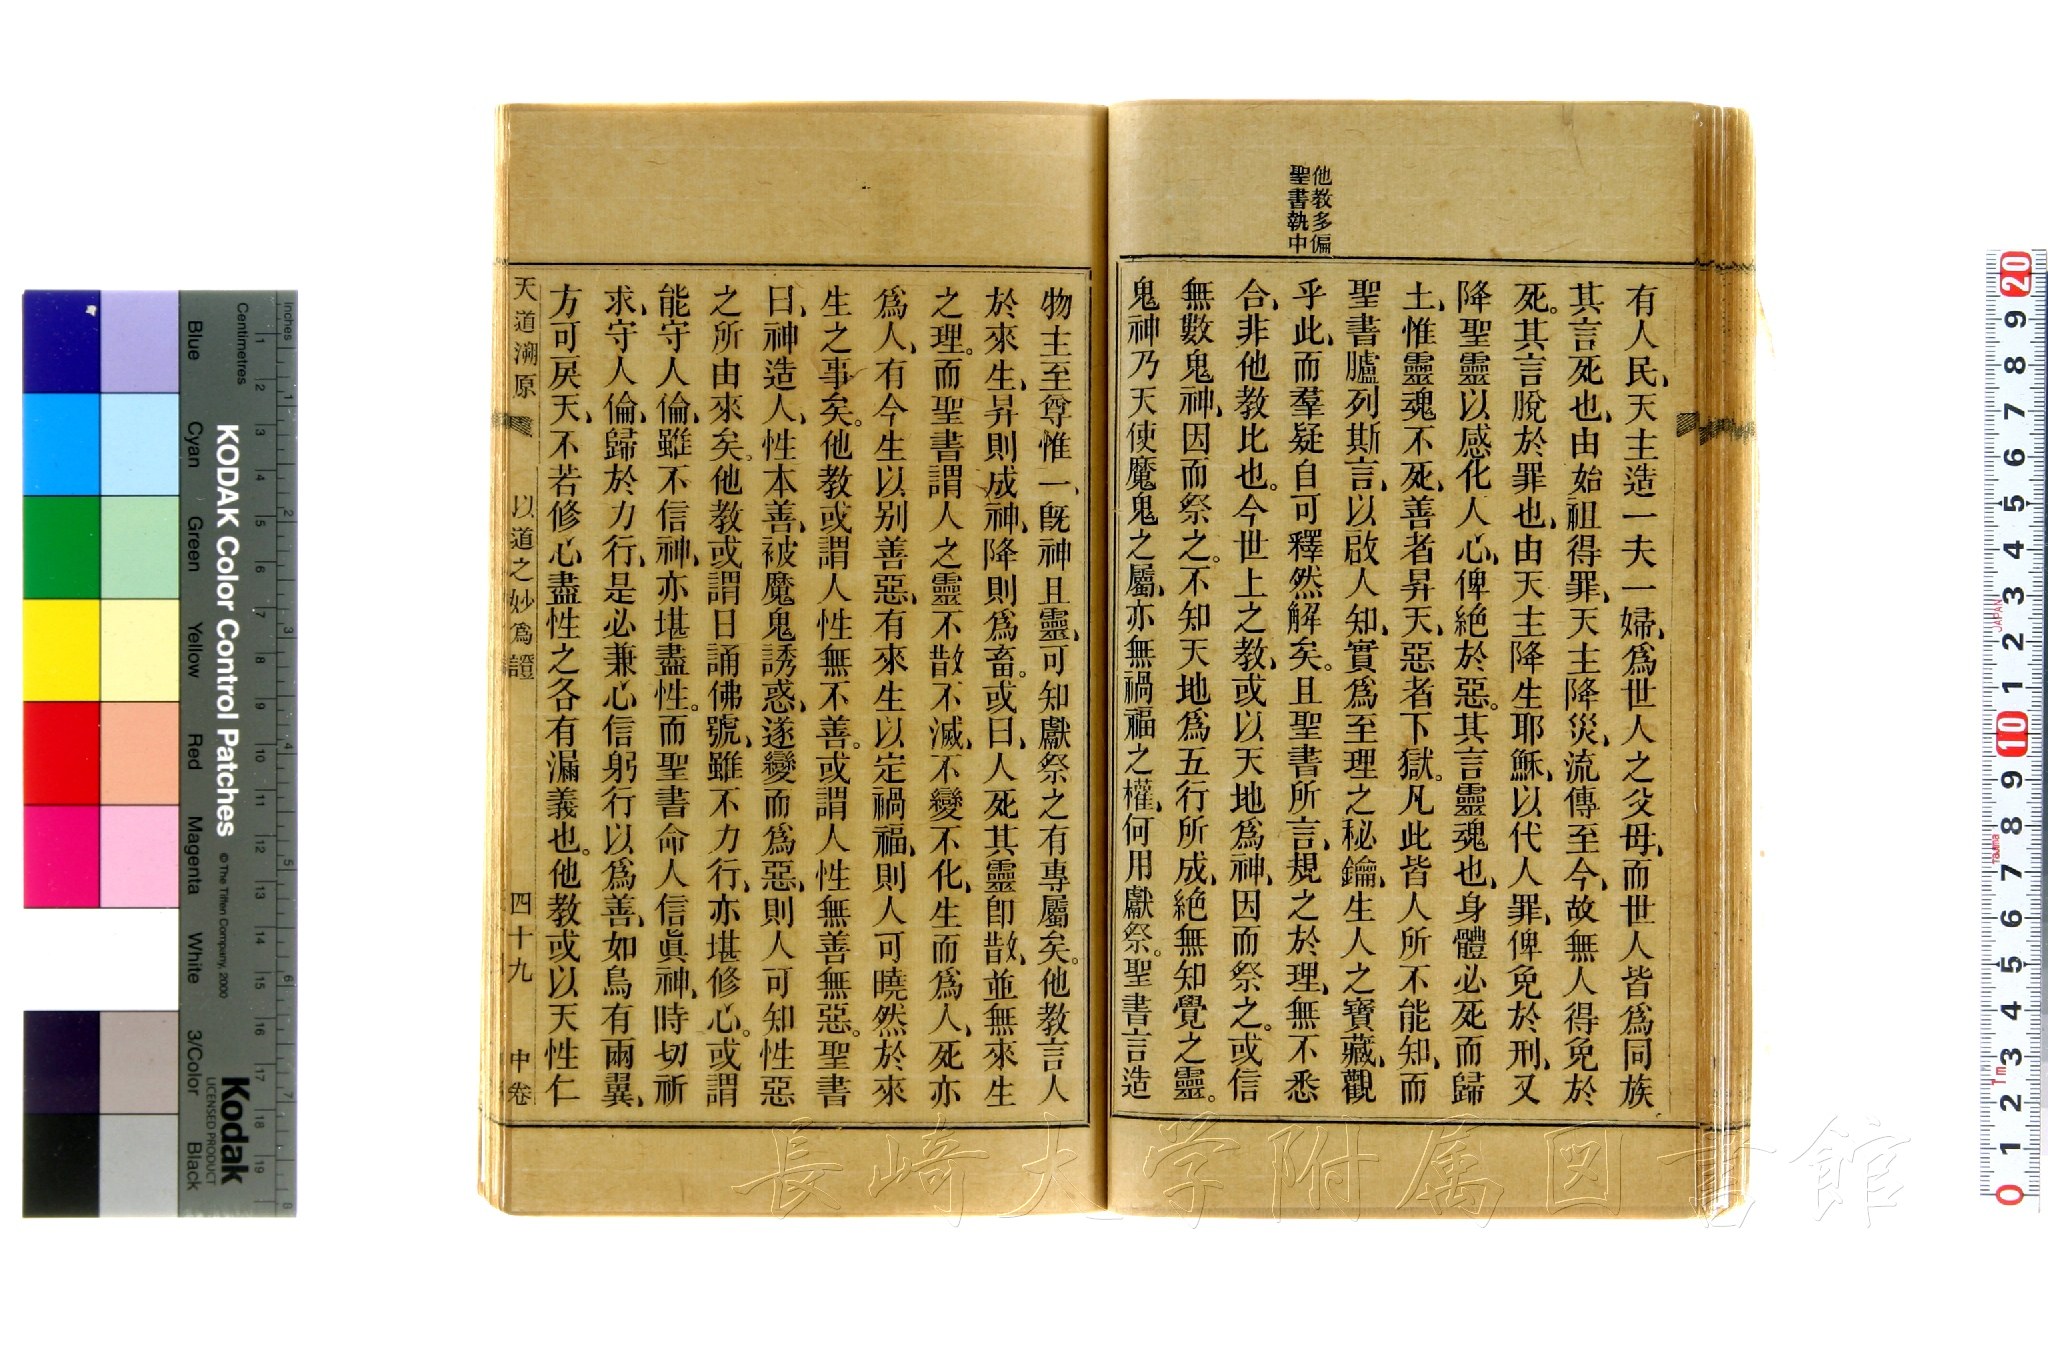 他教多偏
聖書執中
有人民、天主造一夫一婦、爲世人之父母、而世人皆爲同族
其言死也、由始祖得罪、天主降災、流傳至今、故無人得免於
死。其言脫於罪也、由天主降生耶穌、以代人罪、俾免於刑、又
降聖靈以感化人心、俾絕於惡。其言靈魂也、身體必死而歸
土、惟靈魂不死、善者昇天、惡者下獄。凡此皆人所不能知、而
聖書臚列斯言、以啟人知、實爲至理之秘鑰、生人之寶藏、觀
乎此、而羣疑自可釋然解矣。且聖書所言、規之於理、無不悉
合、非他教比也。今世上之教、或以天地爲神、因而祭之。或信
無數鬼神、因而祭之。不知天地爲五行所成、絕無知覺之靈。
鬼神乃天使魔鬼之屬、亦無禍福之權、何用獻祭。聖書言造
物主至尊惟一、旣神且靈、可知獻祭之有專屬矣。他教言人
於來生、昇則成神、降則爲畜。或曰、人死其靈卽散、並無來生
之理。而聖書謂人之靈不散不滅、不變不化、生而爲人、死亦
爲人、有今生以別善惡、有來生以定禍福、則人可曉然於來
生之事矣。他教或謂人性無不善。或謂人性無善無惡。聖書
曰、神造人、性本善、被魔鬼誘惑、遂變而爲惡、則人可知性惡
之所由來矣。他教或謂日誦佛號、雖不力行、亦堪修心。或謂
能守人倫、雖不信神、亦堪盡性。而聖書命人信眞神、時切祈
求、守人倫、歸於力行、是必兼心信躬行以爲善、如鳥有兩翼、
方可戾天、不若修心盡性之各有漏義也。他教或以天性仁
天道溯原
以道之妙爲證
四十九
中卷
KODAK Color Control Patches
©The Tiffen Company, 2000
Kodak
LICENSED PRODUCT
Inches
Centimetres
Blue
Cyan
Green
Yellow
Red
Magenta
White
3/Color
Black
1 2 3 4 5 6 7 8 9 10 11 12 13 14 15 16 17 18 19
1 2 3 4 5 6 7 8
20 9 8 7 6 5 4 3 2 1 10 9 8 7 6 5 4 3 2 1 0
JAPAN
Tajima
1m
長崎大学附属図書館